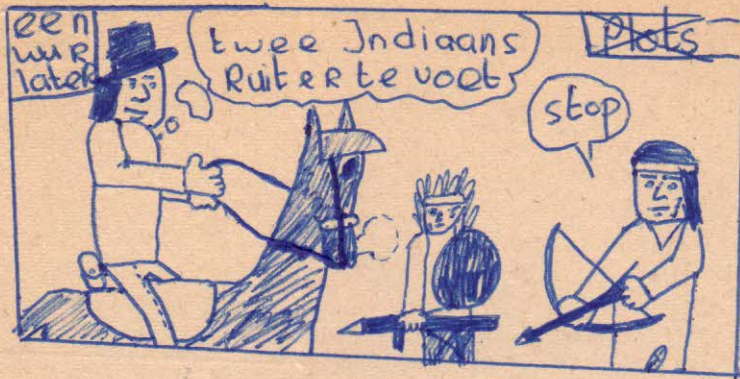 een
uur
later
twee Indiaans
Ruiter te voet
Plots
stop